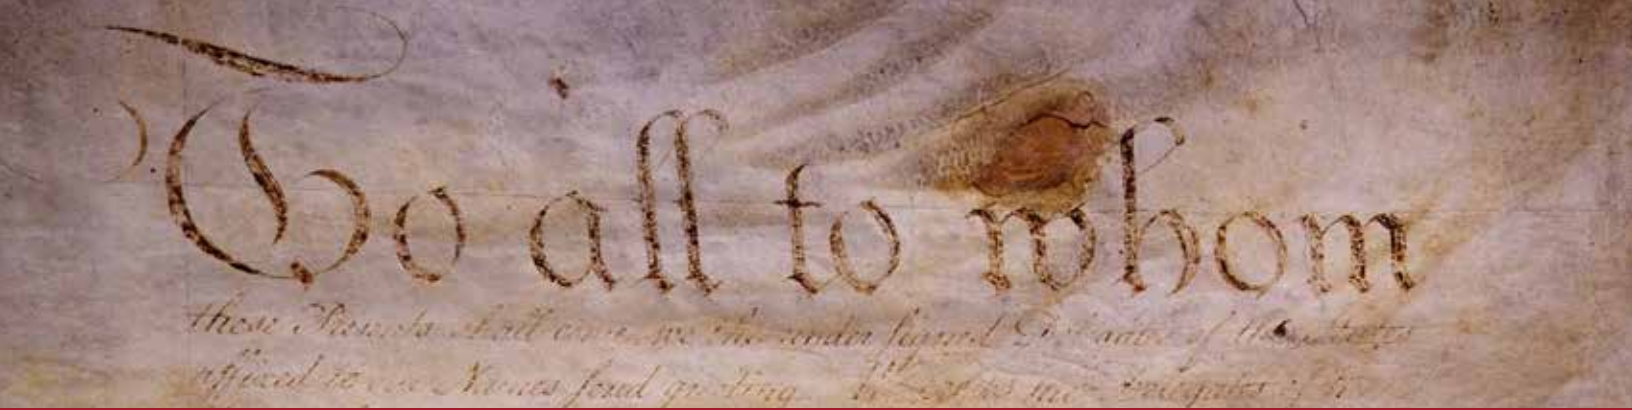 To all to whom
these Presents shall come, we the under signed Delegates of the States
affixed to our Names send greeting. Whereas the Delegates of the